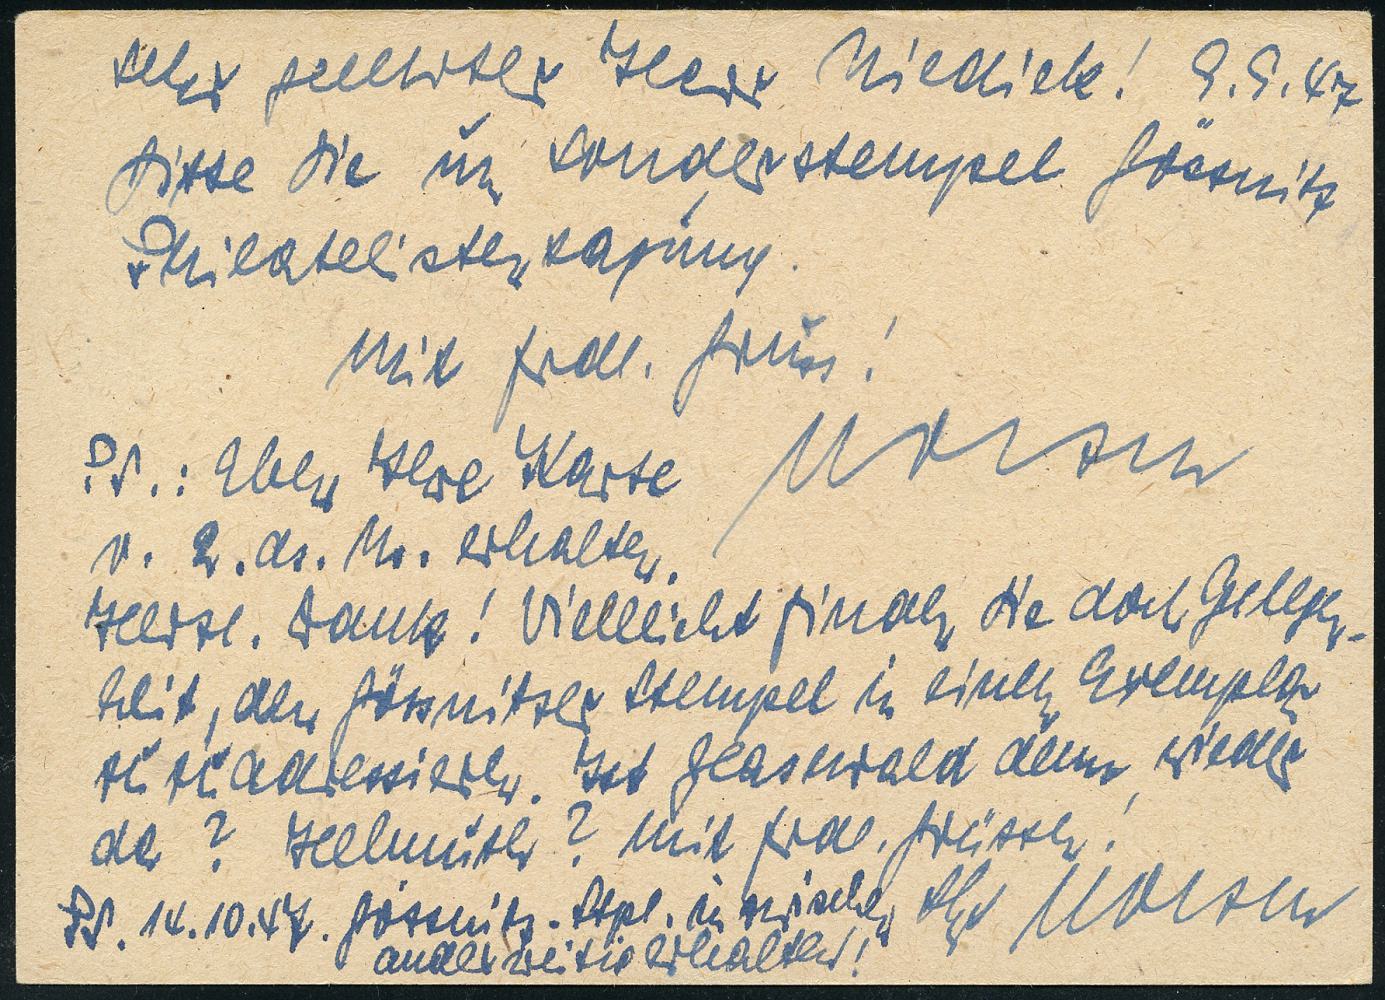 Sehr geehrter Herr Niedieck! 9.9.47
Bitte Sie um Sonderstempel Gössnitz
Philatelistentagung.
Mit frdl. Gruss!
P.S.: Eben Ihre Karte
v. 2. ds. Mo. erhalten.
Herzl. Dank! Vielleicht finden Sie doch Gelegen-
heit, den Gössnitzer Stempel in einem Exemplar
zu zuadressieren. Ist Glasewald denn wieder
da? Hellmuth? Mit frdl. Grüssen!
P.S. 14.10.47. Gössnitz-Stpl. inzwischen Ihr
anderweitig erhalten!